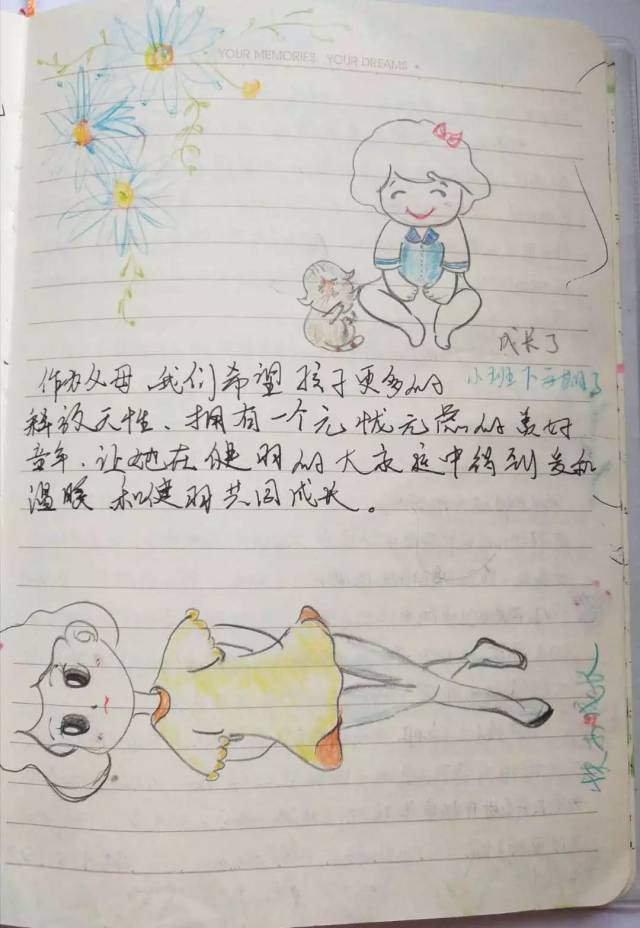 YOUR MEMORIES YOUR DREAMS
成长了
小班下开始了
作为父母,我们希望孩子更多的
释放天性、拥有一个无忧无虑的美好
童年.让她在健羽的大家庭中得到爱和
温暖 和健羽共同成长。
快乐成长